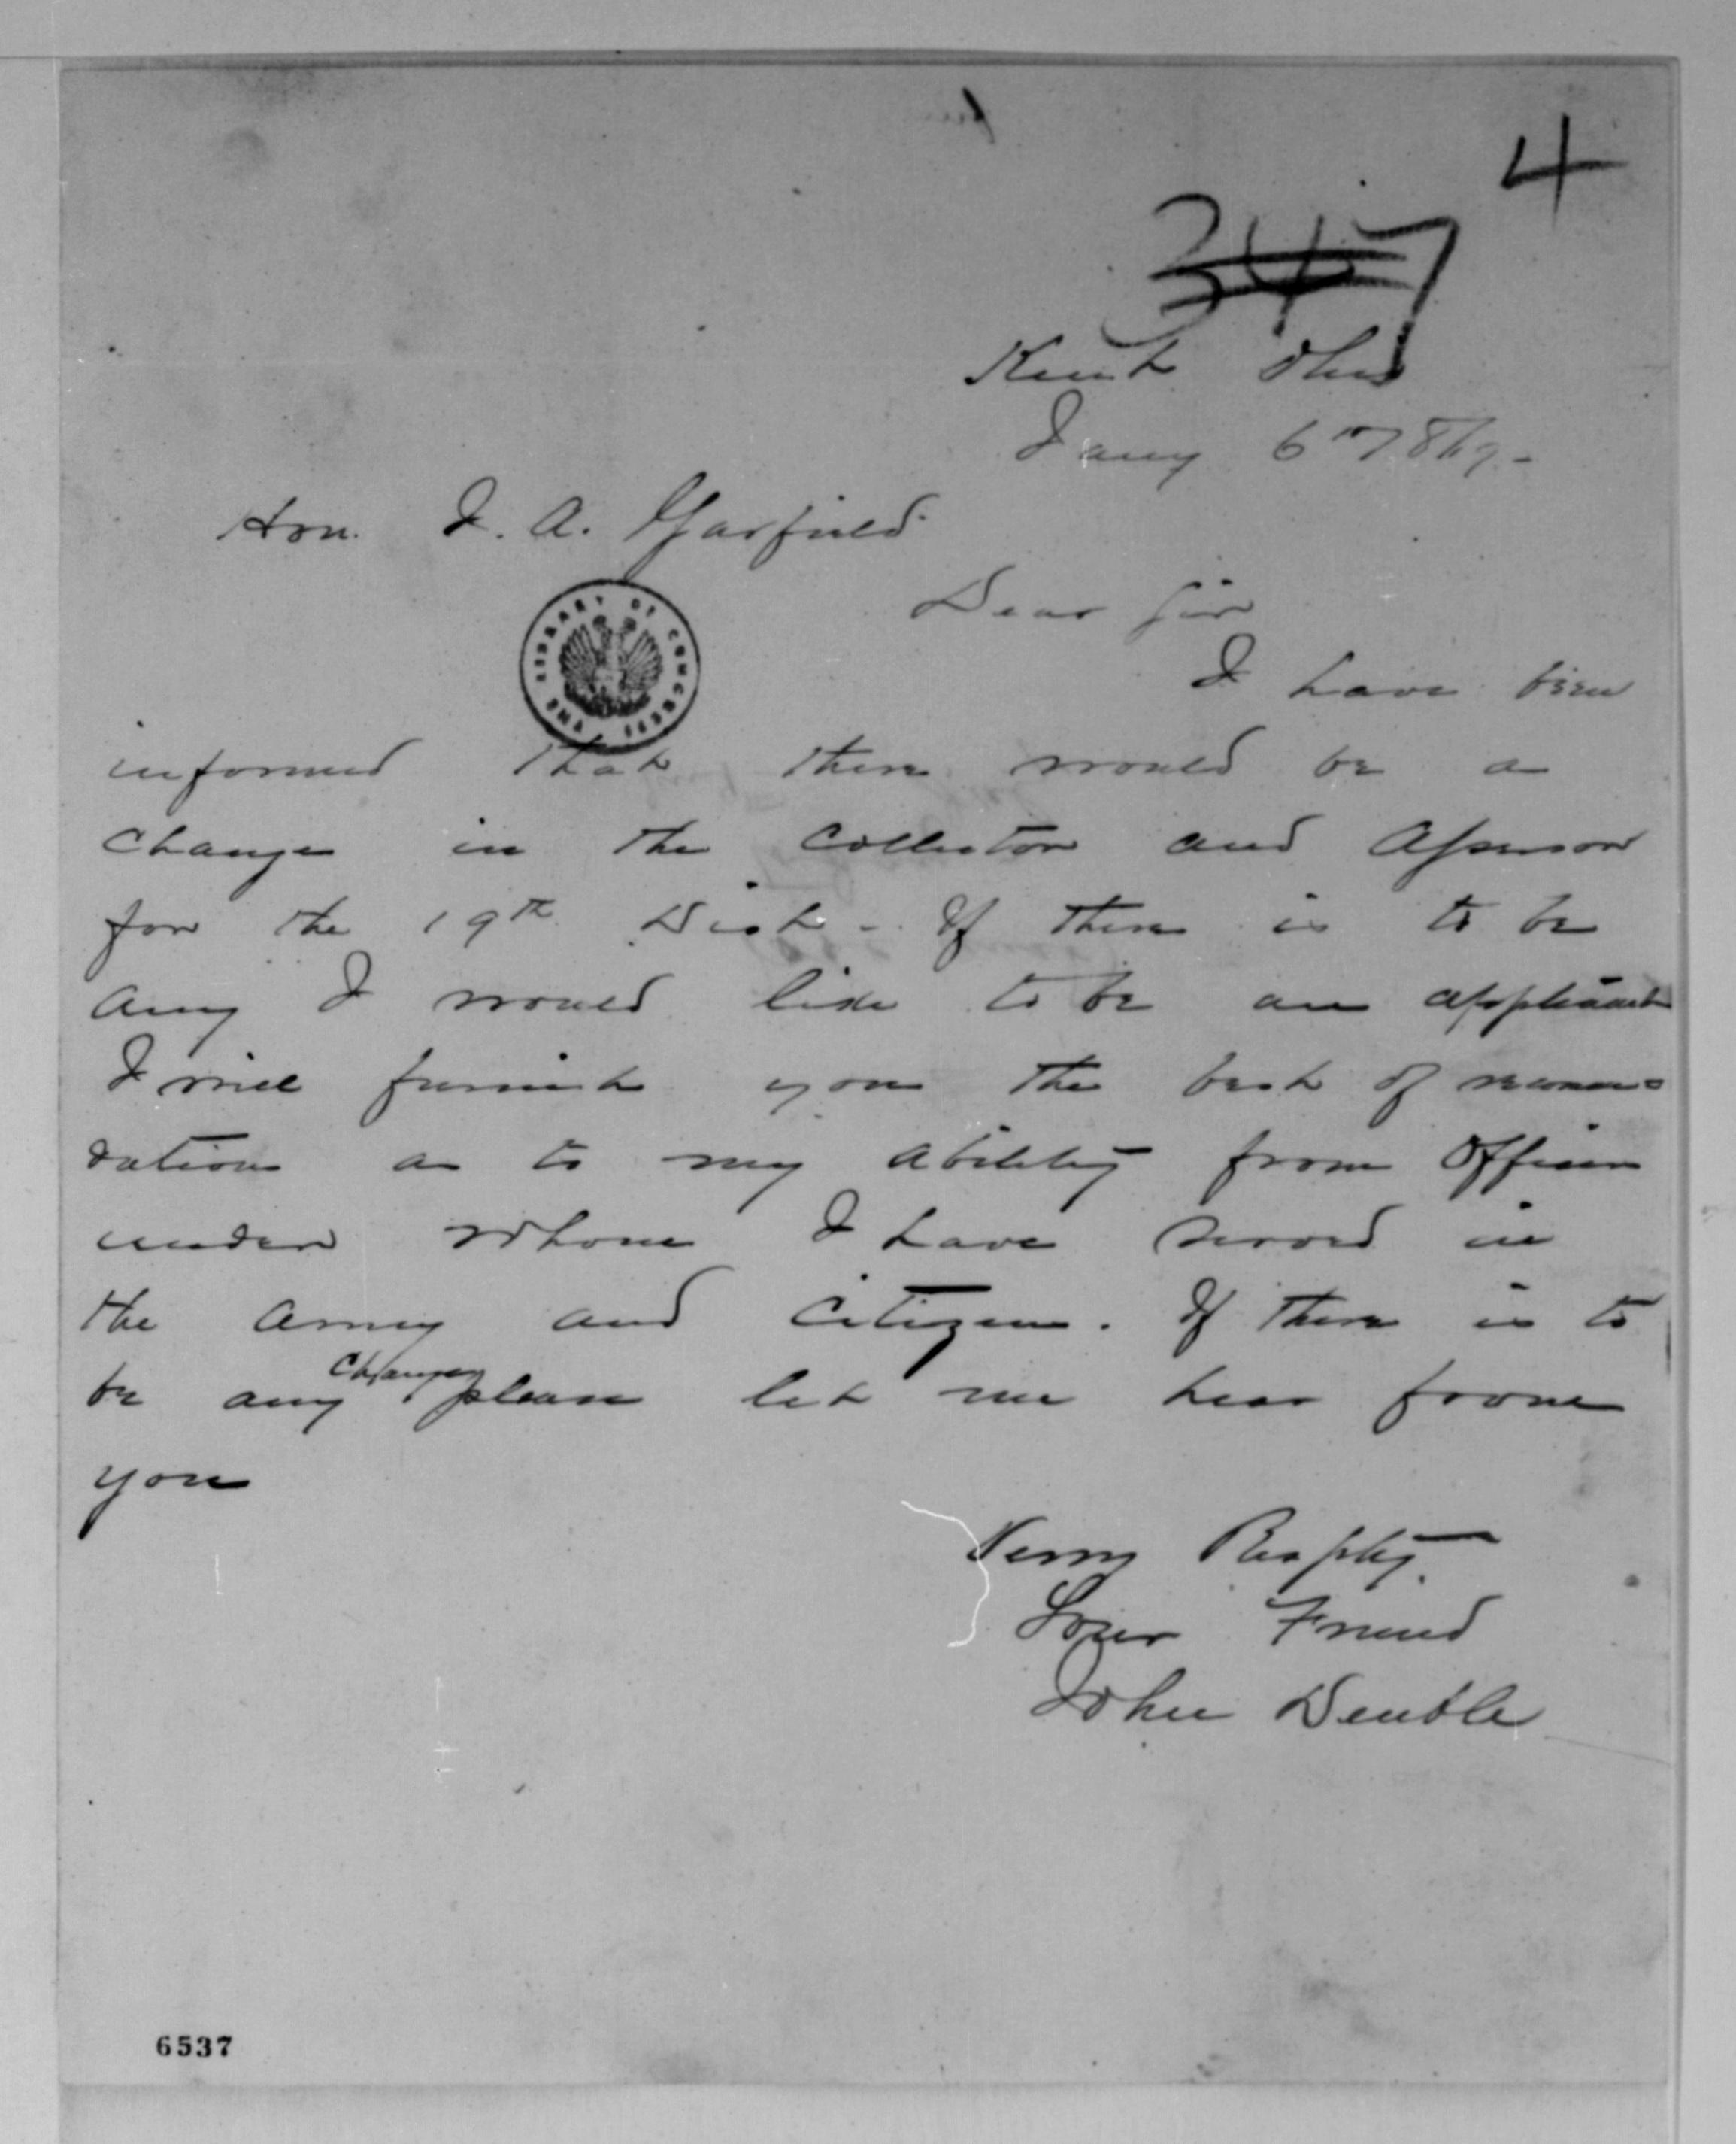 4
347
Kent Ohio
Jany 6th 1869.
Hon. J. A. Garfield.
THE LIBRARY OF CONGRESS
Dear Sir
I have been
informed that there would be a
change in the Collector and Assessor
for the 19th Dist - If there is to be
any I would like to be an applicant
I will furnish you the best of recomen=
dation as to my ability from Officers
under whom I have served in
the army and Citizens. If there is to
be any changes please let me hear from
you
Very Respty
Your Friend
John Deuble
6537